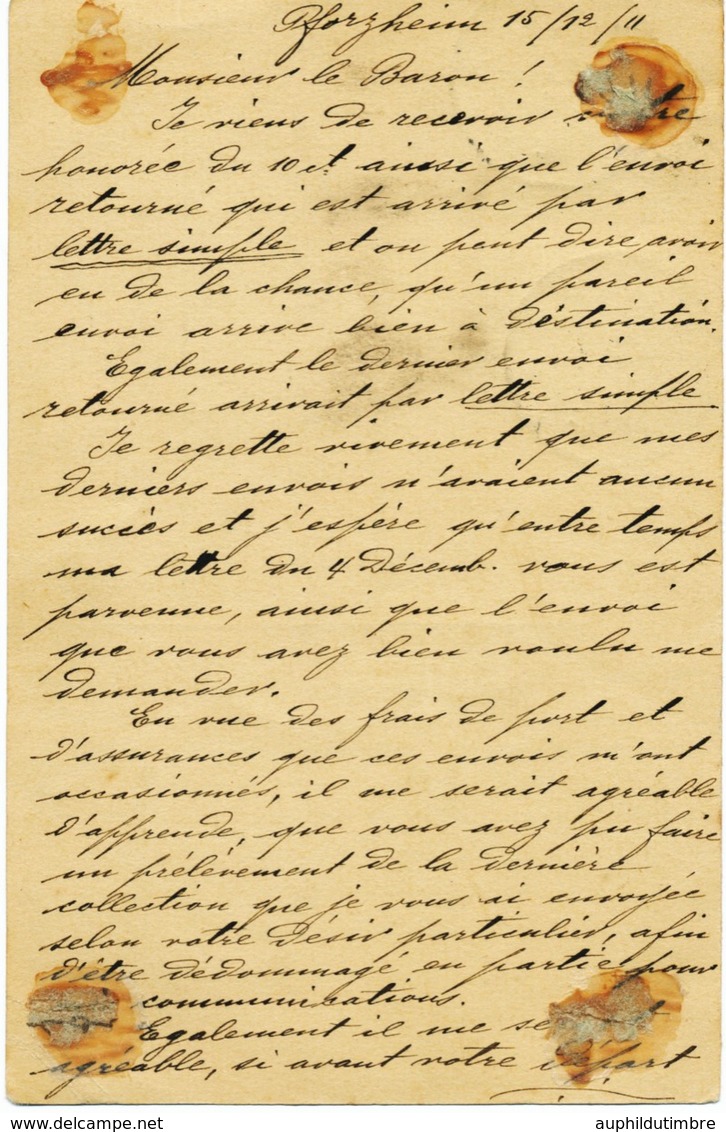 Pforzheim 15/12/11
Monsieur le Baron!
Je viens de recevoir
honorée du 10 ct ainsi que l'envoi
retourné qui est arrivé par
lettre simple et on peut dire avoir
eu de la chance, qu'un pareil
envoi arrive bien à déstination.
Egalement le dernier envoi
retourné arrivait par lettre simple
Je regrette vivement que mes
derniers envois n'avaient aucun
succès et j'espère qu'entre temps
ma lettre du 4 Décemb. vous est
parvenue, ainsi que l'envoi
que vous avez bien voulu me
demander.
En vue des frais de port et
d'assurances que ces envois m'ont
occasionnés, il me serait agréable
d'apprende, que vous avez pu faire
un prélévement de la dernière
collection que je vous ai envoyée
selon votre désir particulier, afin
d'être dédommagé en partie pour
communications.
Egalement il me
agréable, si avant votre départ
auphildutimbre